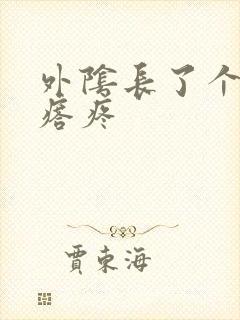 外陰長了个
瘩疼
賈東海